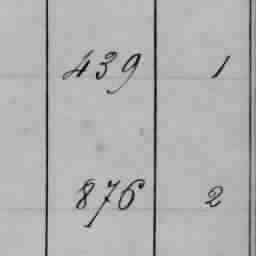 439 1
876 2